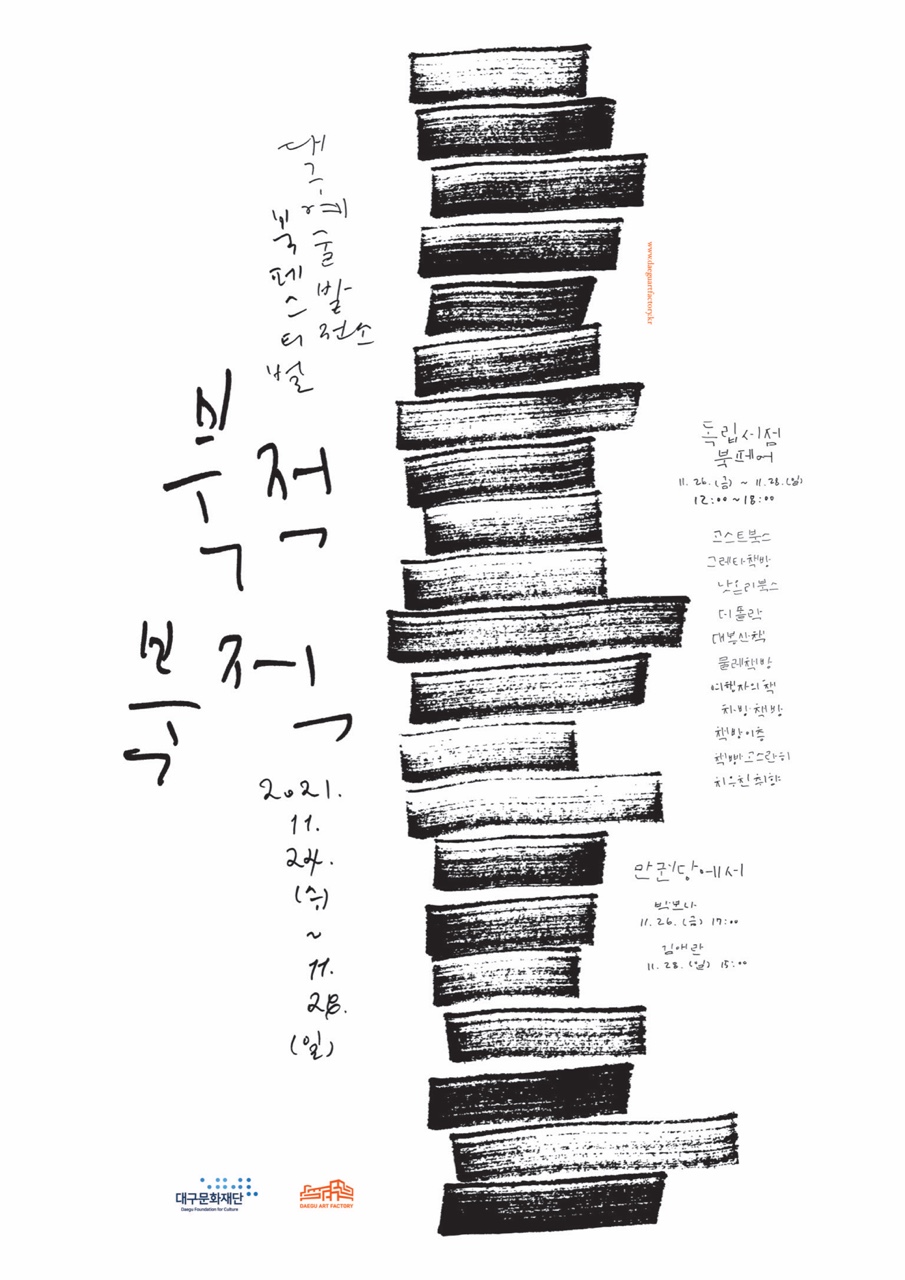 대구예술발전소
북페스티벌
북적
북적
2021.
11.
24.
(수)
~
11.
28.
(일)
www.daeguartfactory.kr
독립서점
북페어
11. 26. (금) ~ 11. 28. (일)
12:00 ~ 18:00
고스트북스
그레타책방
낫온리북스
더폴락
대봉산책
물레책방
여행자의책
차방책방
책방이층
책빵고스란히
치우친취향
만권당에서
박보나
11. 26. (금) 17:00
김애란
11. 28. (일) 15:00
대구문화재단
Daegu Foundation for Culture
DAEGU ART FACTORY